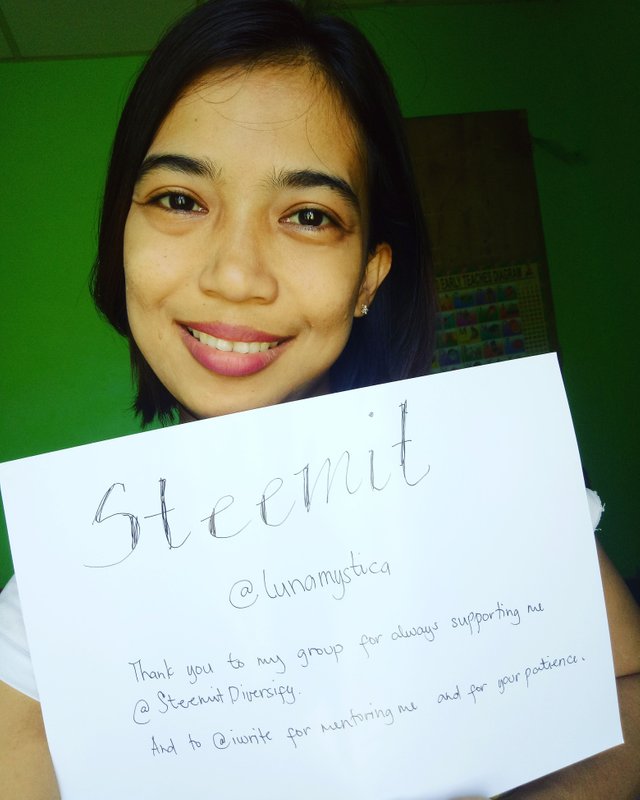 EARLY TEACHER DIAGRAM
Steemit
@lunamystica
Thank you to my group for always supporting me
@SteemitDiversify.
And to @iwrite for mentoring me and for your patience.